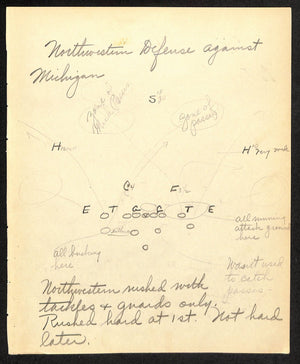 Northwestern Defense against
Michigan
S
zone of
passes
H
H
C
F
E T G G T E
all running
attack
here
all bucking
here
Wasn't used
to catch
passes -
Northwestern rushed with
tackles & guards only.
Rushed hard at 1st. Not hard
later.